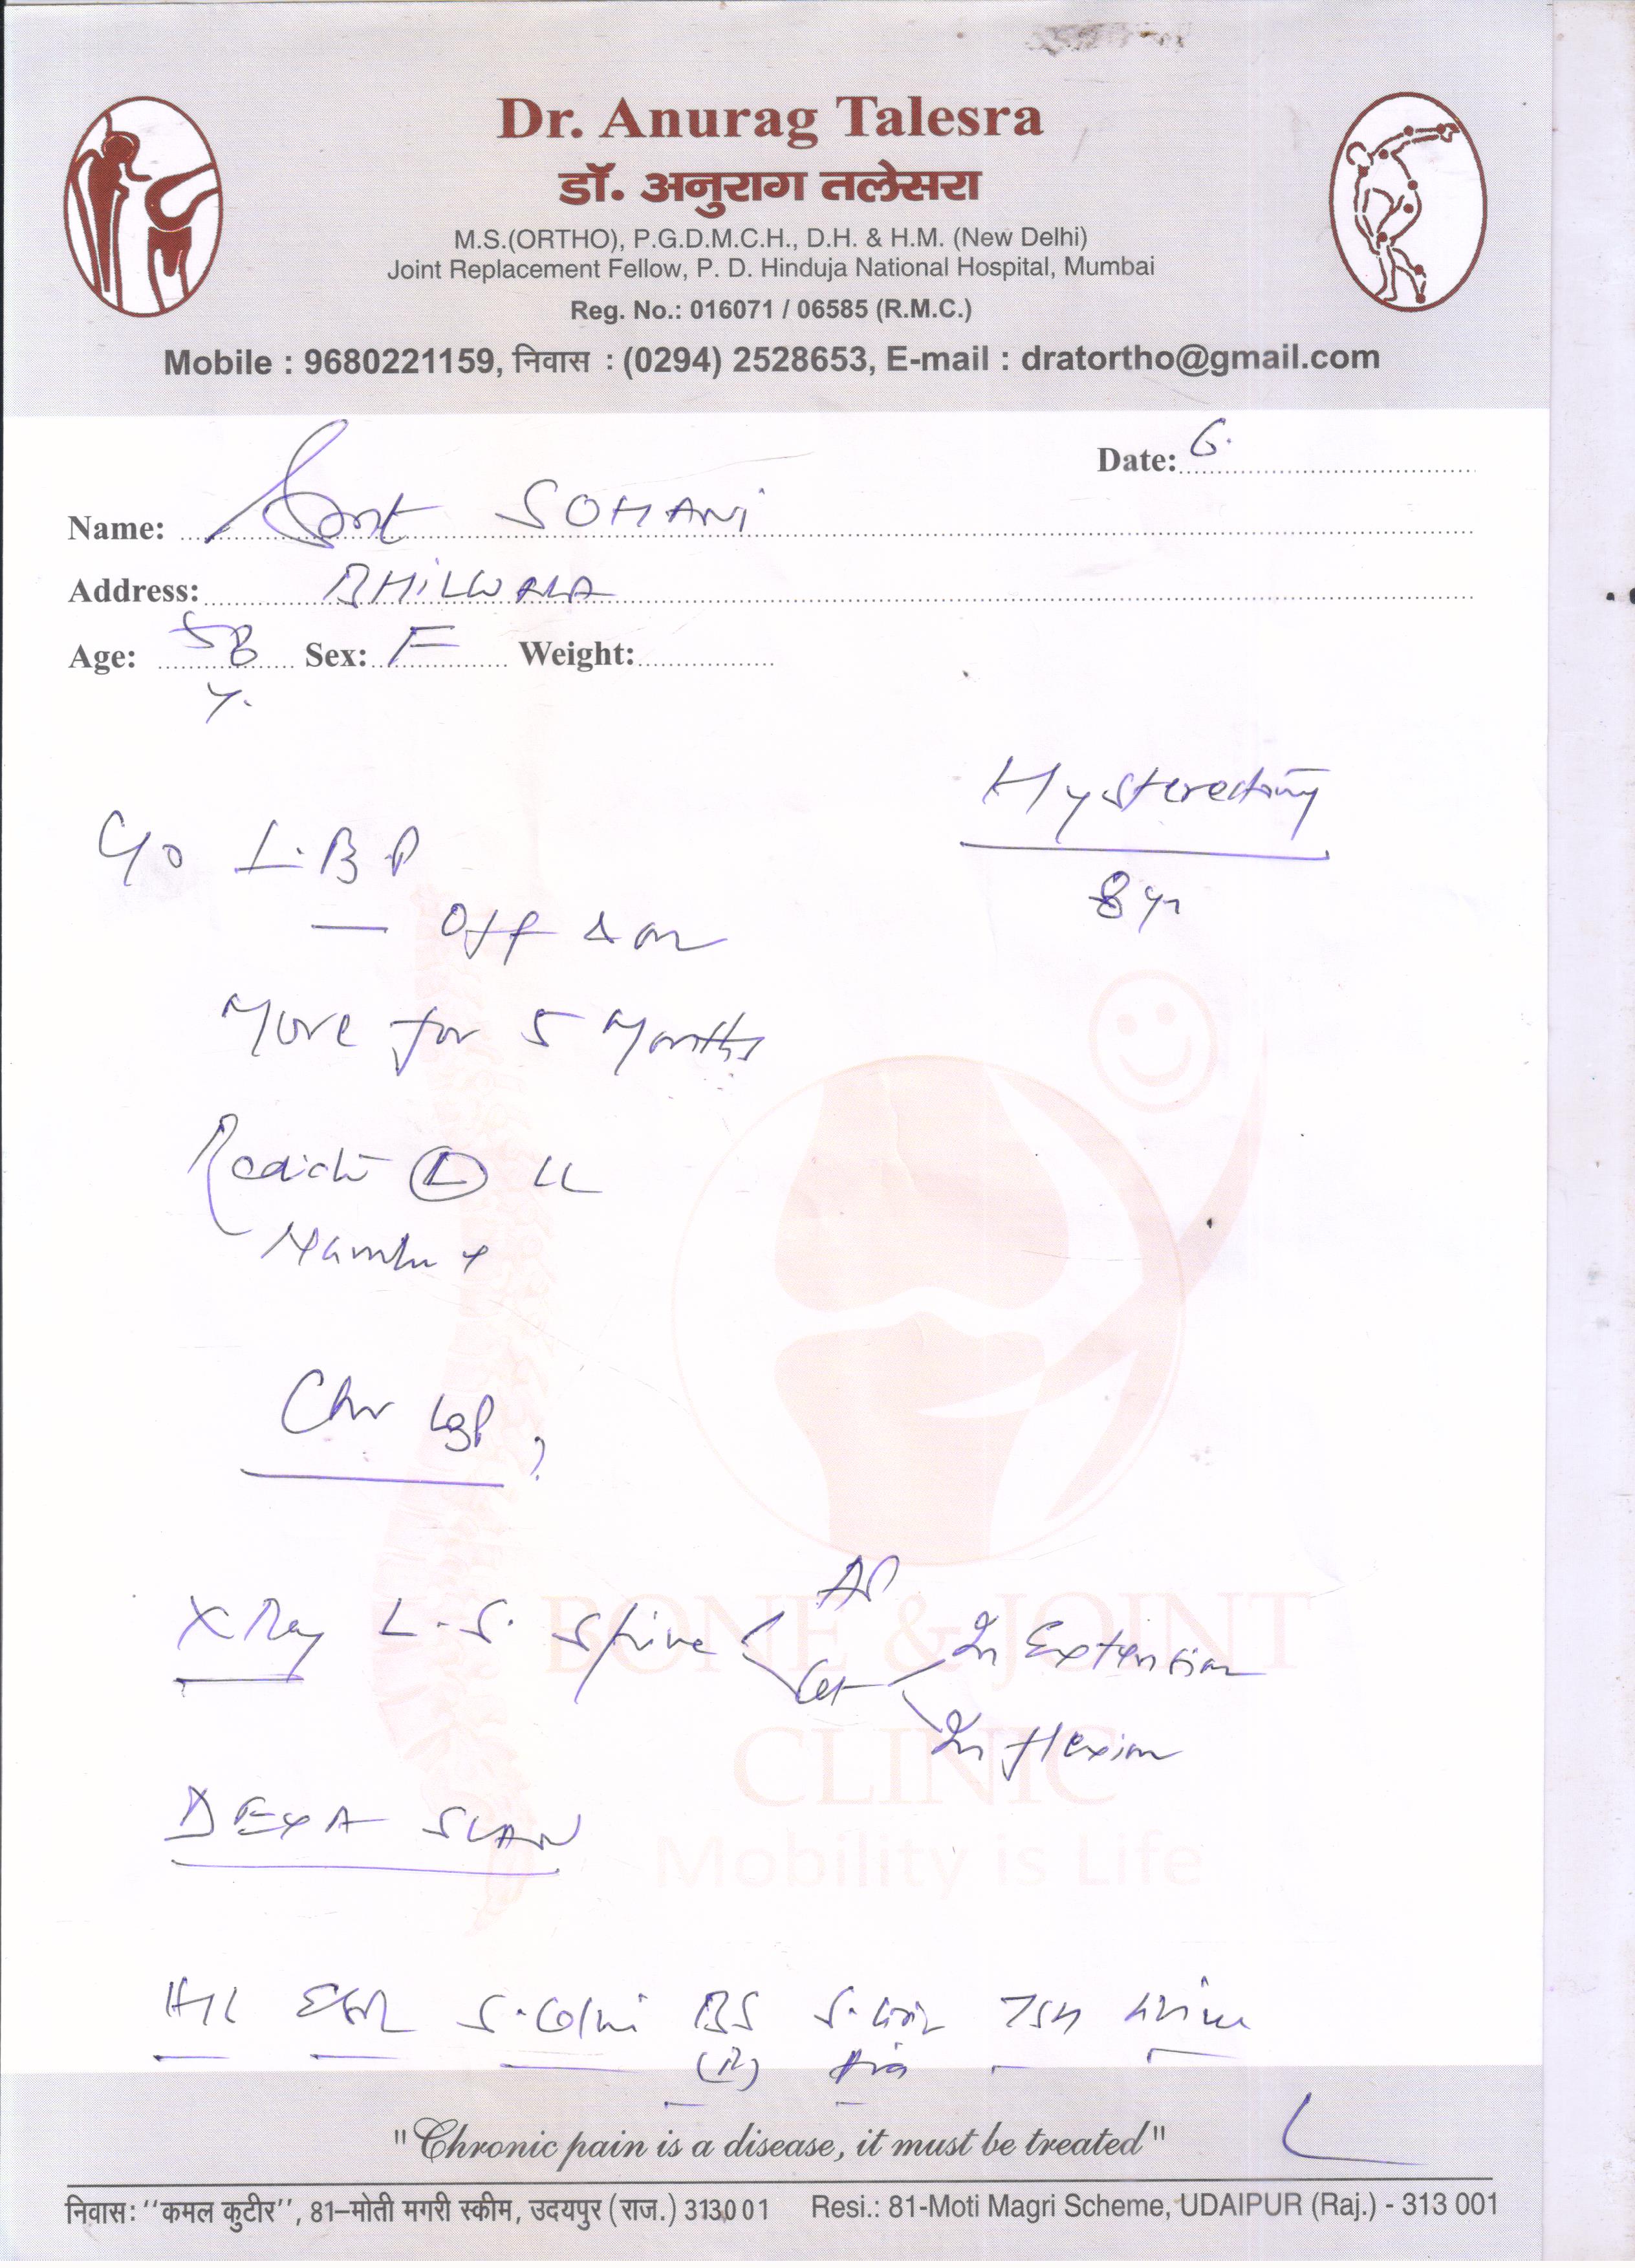 Dr. Anurag Talesra
डॉ. अनुराग तलेसरा
M.S.(ORTHO), P.G.D.M.C.H., D.H. & H.M. (New Delhi)
Joint Replacement Fellow, P. D. Hinduja National Hospital, Mumbai
Reg. No.: 016071 / 06585 (R.M.C.)
Mobile : 9680221159, निवास : (0294) 2528653, E-mail : dratortho@gmail.com
Date: 6.
Name: Smt SOMANI
Address: BHILWARA
Age: 58 y. Sex: F Weight:
Hysterectomy
8 yr
C/o L.B.P
— Off & on
More for 5 Months
(L) LL
Chr LBP ?
X Ray L.S. Spine AP
Lat In Extension
In flexion
DEXA SCAN
ESR BS TSH Urine
(R)
BONE & JOINT
CLINIC
Mobility is Life
"Chronic pain is a disease, it must be treated"
निवास: ''कमल कुटीर'', 81–मोती मगरी स्कीम, उदयपुर (राज.) 313001 Resi.: 81-Moti Magri Scheme, UDAIPUR (Raj.) - 313 001